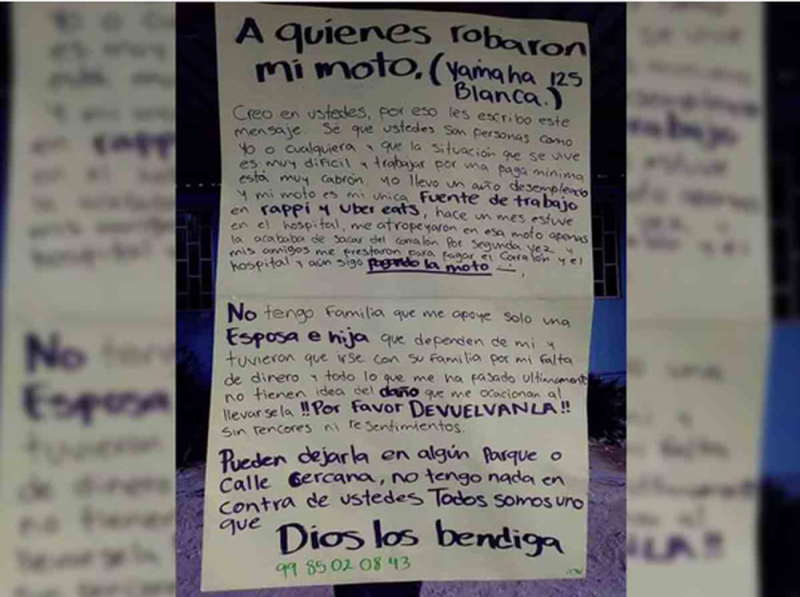 A quienes robaron
mi moto. (Yamaha 125
Blanca.)
Creo en ustedes, por eso les escribo este
mensaje. Sé que ustedes son personas como
yo o cualquiera y que la situación que se vive
es muy difícil y trabajar por una paga mínima
está muy cabrón. yo llevo un año desempleado
y mi moto es mi unica Fuente de trabajo
en rappi y Uber eats, hace un mes estuve
en el hospital, me atropeyaron en esa moto apenas
la acababa de sacar del corralón por segunda vez y
mis amigos me prestaron para pagar el Corralón y el
hospital y aún sigo pagando la moto
No tengo Familia que me apoye solo una
Esposa e hija que dependen de mi y
tuvieron que irse con su Familia por mi falta
de dinero y todo lo que me ha pasado ultimamente
no tienen idea del daño que me ocacionan al
llevarsela !!Por Favor DEVUELVANLA!!
sin rencores ni resentimientos.
Pueden dejarla en algún Parque o
Calle Cercana, no tengo nada en
contra de ustedes Todos somos uno
que
Dios los bendiga
99 85 02 08 43